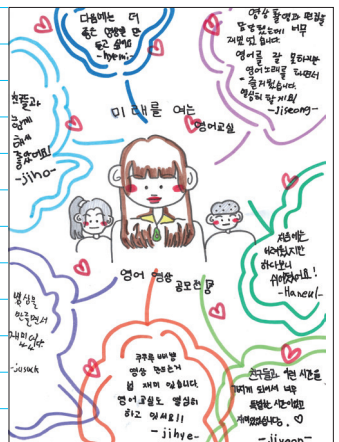 다음에는 더
좋은 영상을 만
들고 싶어요
-hyemi-
영상 촬영과 편집을
담당했는데 너무
재밌었습니다.
영어를 잘 못하지만
영어노래를 하면서
즐거웠습니다.
열심히 할게요!
-Jiseong-
친구들과
함께
해서
좋았어요!
-jiho-
미래를 여는
영어교실
처음에는
어려웠지만
하다보니
쉬워졌어요!
-Haneul-
영어 영상
공모전
영상을
만들면서
재미있었다.
-jusuck
영상 만드는거
넘 재미 있습니다.
영어교실도 열심히
하고 있어요!!
-jihye-
친구들과 이런 시간을
가지게 되어서 너무
특별한 시간이었고
재미있었습니다.
-jiyoon-